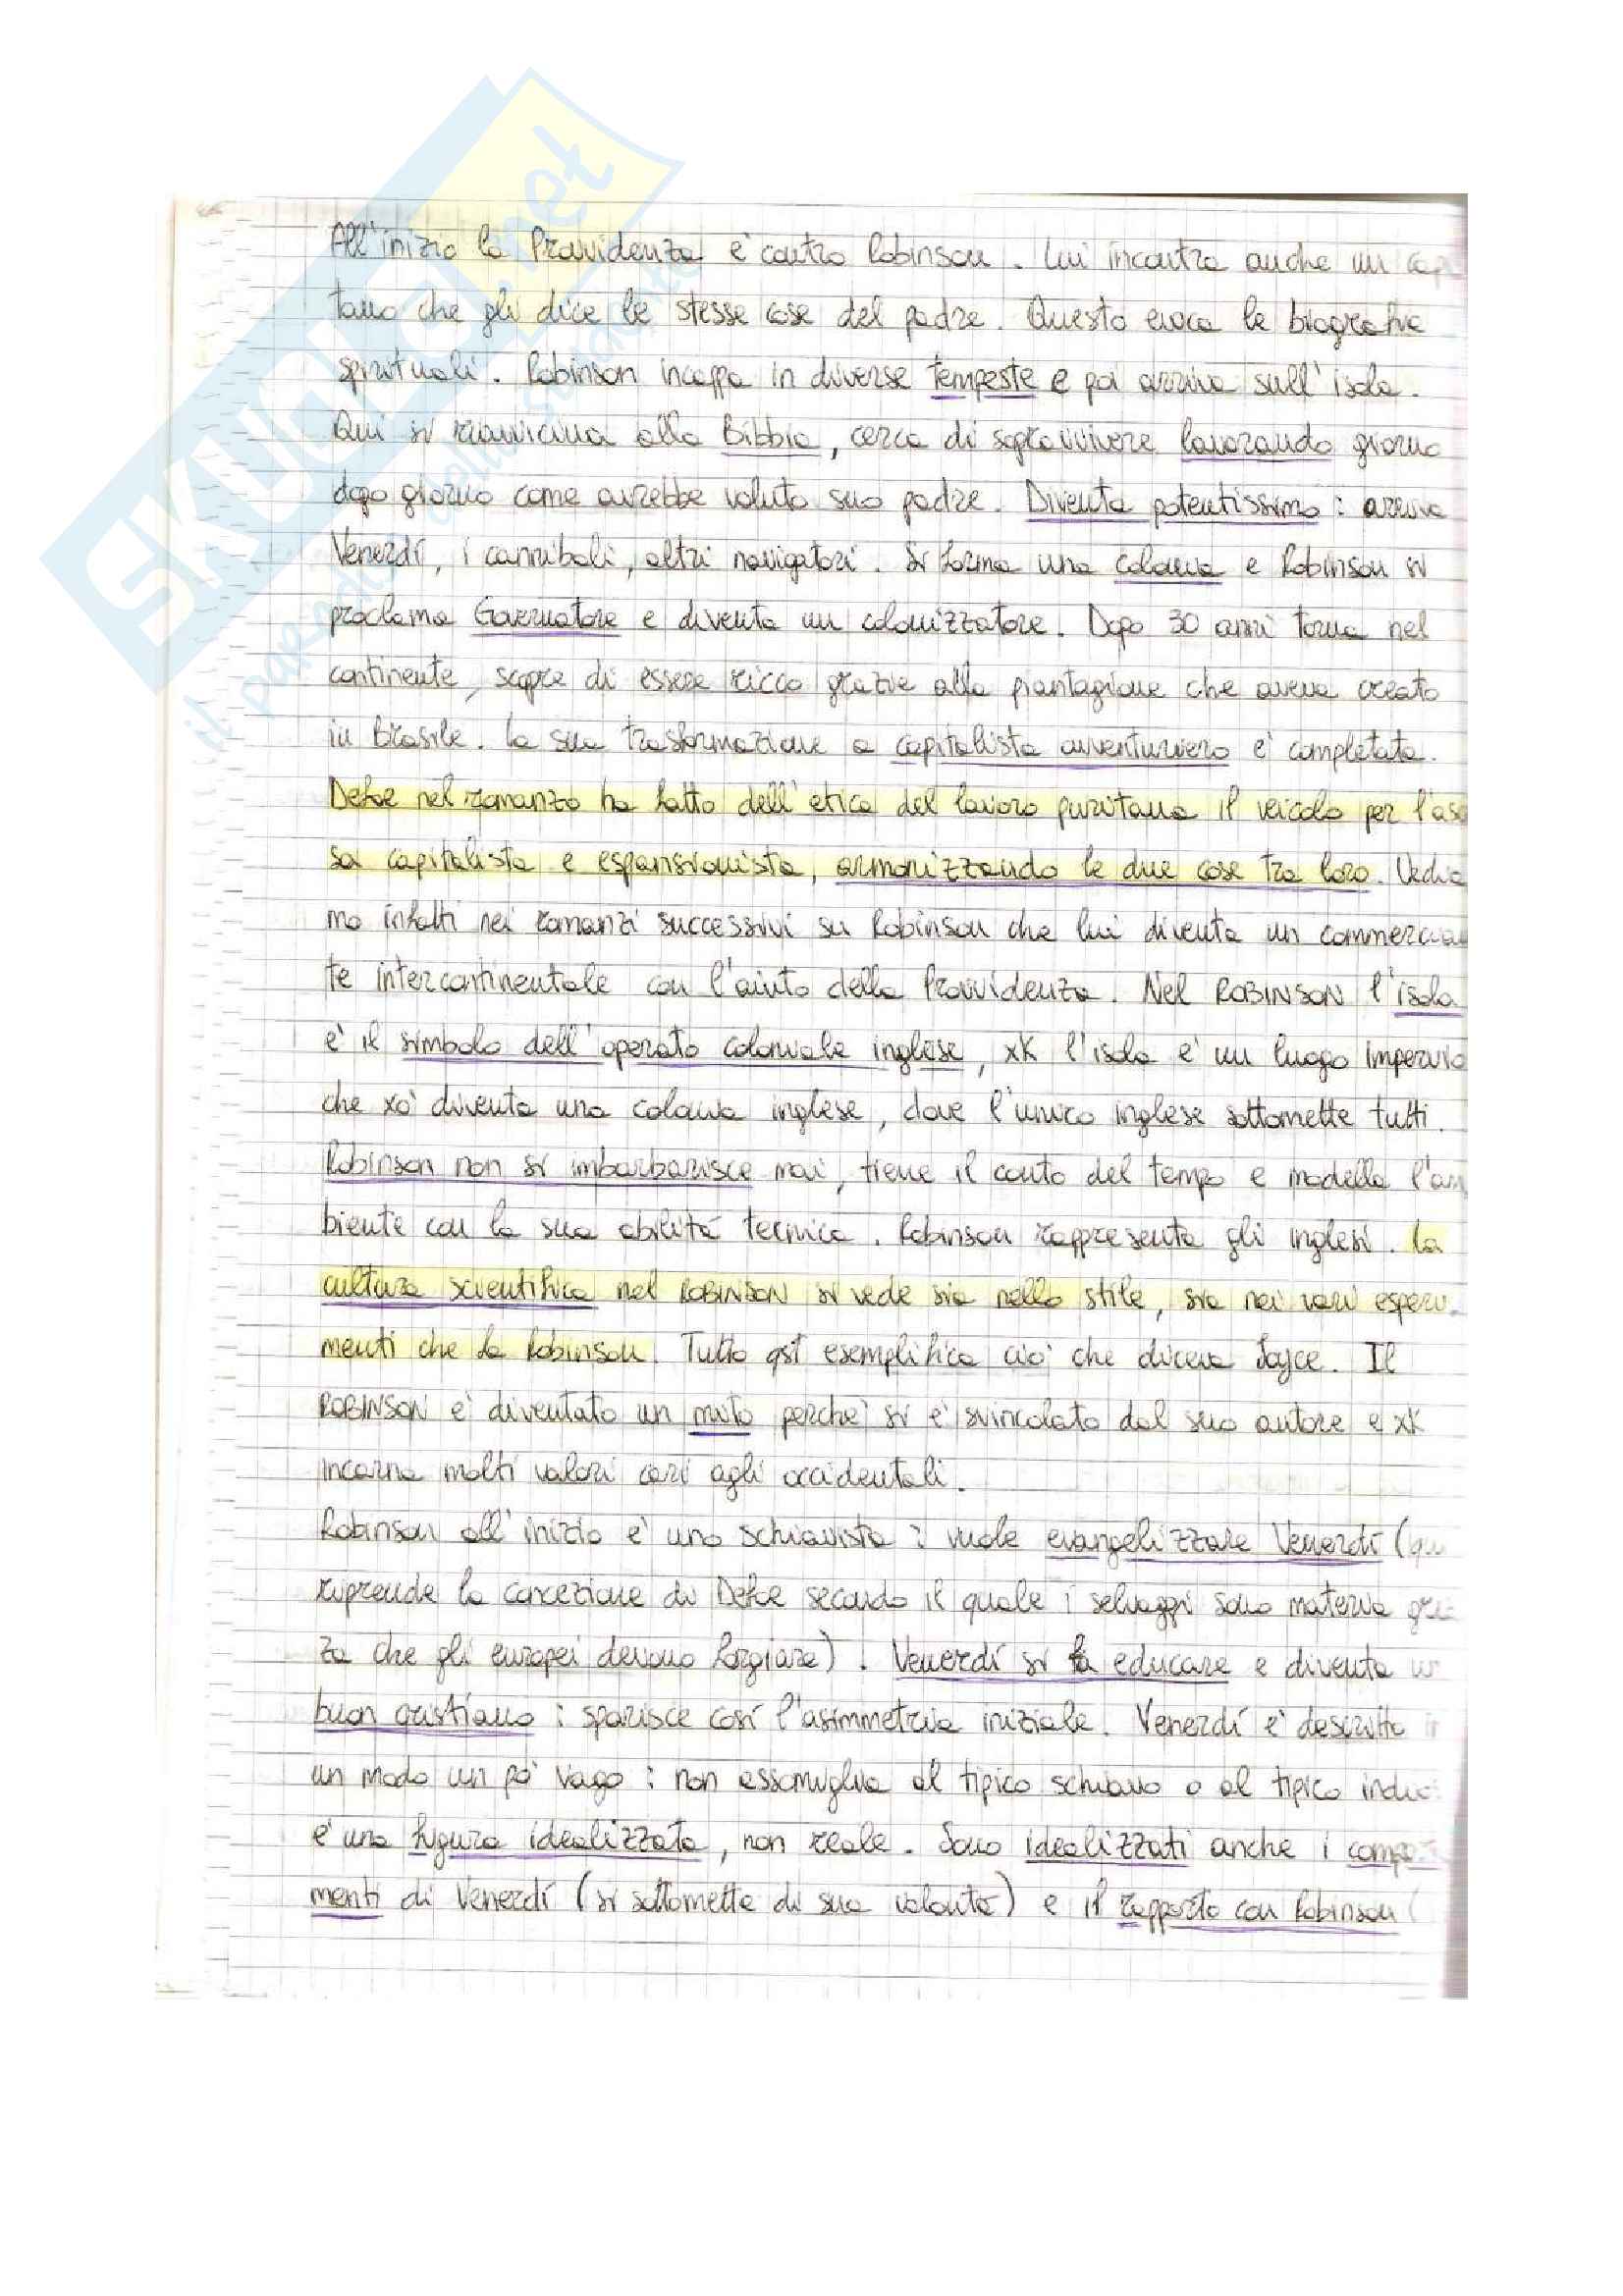 SKUOLA.net
il paradiso dello studente
All'inizio la Provvidenza è contro Robinson. Lui incontra anche un capi
tano che gli dice le stesse cose del padre. Questo evoca le biografie
spirituali. Robinson incappa in diverse tempeste e poi arriva sull'isola.
Qui si riavvicina alla Bibbia, cerca di sopravvivere lavorando giorno
dopo giorno come avrebbe voluto suo padre. Diventa potentissimo: arriva
Venerdí, i cannibali, altri navigatori. Si forma una colonia e Robinson si
proclama Governatore e diventa un colonizzatore. Dopo 30 anni torna nel
continente, scopre di essere ricco grazie alla piantagione che aveva creato
in Brasile. La sua trasformazione a capitalista avventuriero è completata.
Defoe nel romanzo ha fatto dell'etica del lavoro puritana il veicolo per l'asc
sa capitalista e espansionista, armonizzando le due cose tra loro. Vedia
mo infatti nei romanzi successivi su Robinson che lui diventa un commercian
te intercontinentale con l'aiuto della Provvidenza. Nel ROBINSON l'isola
è il simbolo dell'operato coloniale inglese, xK l'isola è un luogo impervio
che xò diventa una colonia inglese, dove l'unico inglese sottomette tutti.
Robinson non si imbarbarisce mai, tiene il conto del tempo e modella l'am
biente con la sua abilità tecnica. Robinson rappresenta gli inglesi. La
cultura scientifica nel ROBINSON si vede sia nello stile, sia nei vari esperi-
menti che fa Robinson. Tutto qst esemplifica ciò che diceva Joyce. Il
ROBINSON è diventato un mito perché si è svincolato dal suo autore e xK
incarna molti valori cari agli occidentali.
Robinson all'inizio è uno schiavista: vuole evangelizzare Venerdí (qui
riprende la concezione di Defoe secondo il quale i selvaggi sono materia grez
za che gli europei devono forgiare). Venerdí si fa educare e diventa un
buon cristiano: sparisce cosí l'asimmetria iniziale. Venerdí è descritto in
un modo un pò vago: non assomiglia al tipico schiavo o al tipico indio:
è una figura idealizzata, non reale. Sono idealizzati anche i comporta
menti di Venerdí (si sottomette di sua volontà) e il rapporto con Robinson (